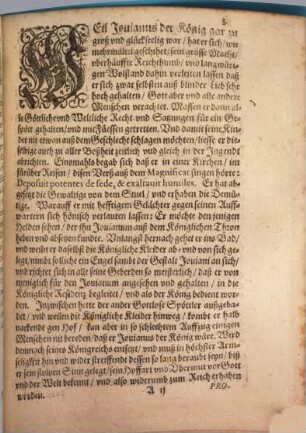 WEil Jouianus der König gar zu
groß vnd glückselig war / hat er sich / wie
mehrmalen geschihet / sein grosse Macht /
vberhäuffte Reichthumb / vnd langwüri-
gen Wolstand dahin verleiten lassen daß
er sich zwar selbsten auß blinder Lieb sehr
hoch gehalten / Gott aber vnd alle andere
Menschen verachtet. Massen er dann al-
le Göttliche vnd Weltliche Recht vnd Satzungen für ein Ge-
spött gehalten / vnd mit Füessen getretten. Vnd damit seine Kin-
der nit etwan auß dem Geschlecht schlagen möchten / liesse er die-
selbige auch zu aller Boßheit zeitlich vnd gleich in der Jugendt
abrichten. Einsmahls begab sich daß er in einer Kirchen / im
fürüber Reisen / disen Verß auß dem Magnificat singen hörte:
Deposuit potentes de sede, & exaltauit humiles. Er hat ab-
gesetzt die Gewaltige von dem Stuel / vnd erhaben die Demü-
tige. Warauff er mit hefftigem Gelächter gegen seinen Auff-
wartern sich hönisch verlauten lassen: Er möchte den jenigen
Helden sehen / der ihn Jouianum auß dem Königlichen Thron
heben vnd absetzen kundte. Vnlangst hernach gehet er ins Bad /
vnd weil er daselbst die Königliche Kleider ab- vnd von sich ge-
legt / nimbt solche ein Engel sambt der Gestalt Jouiani an sich /
vnd richtet sich in alle seine Geberden so meisterlich / daß er von
menigklich für den Jouianum angesehen vnd gehalten / in die
Königliche Residentz begleitet / vnd als der König bedient wor-
den. Inzwischen hette der ander Gottlose Spöttler außgeba-
det / vnd weilen die Königliche Kleider hinweg / kombt er halb
nackend gen Hof / kan aber in so schlechtem Auffzug einigen
Menschen nit bereden / daß er Jouianus der König wäre. Wird
demnach seines Königreichs entsetzt / vnd muß in höchster Arm-
seligkeit hin vnd wider streiffendt dessen so lang beraubt seyn / biß
er sein stoltzen Sinn gelegt / sein Hoffart vnd Vbermut vor Gott
vnd der Welt bekennt / vnd also widerumb zum Reich erhaben
worden.
A ij PRO-